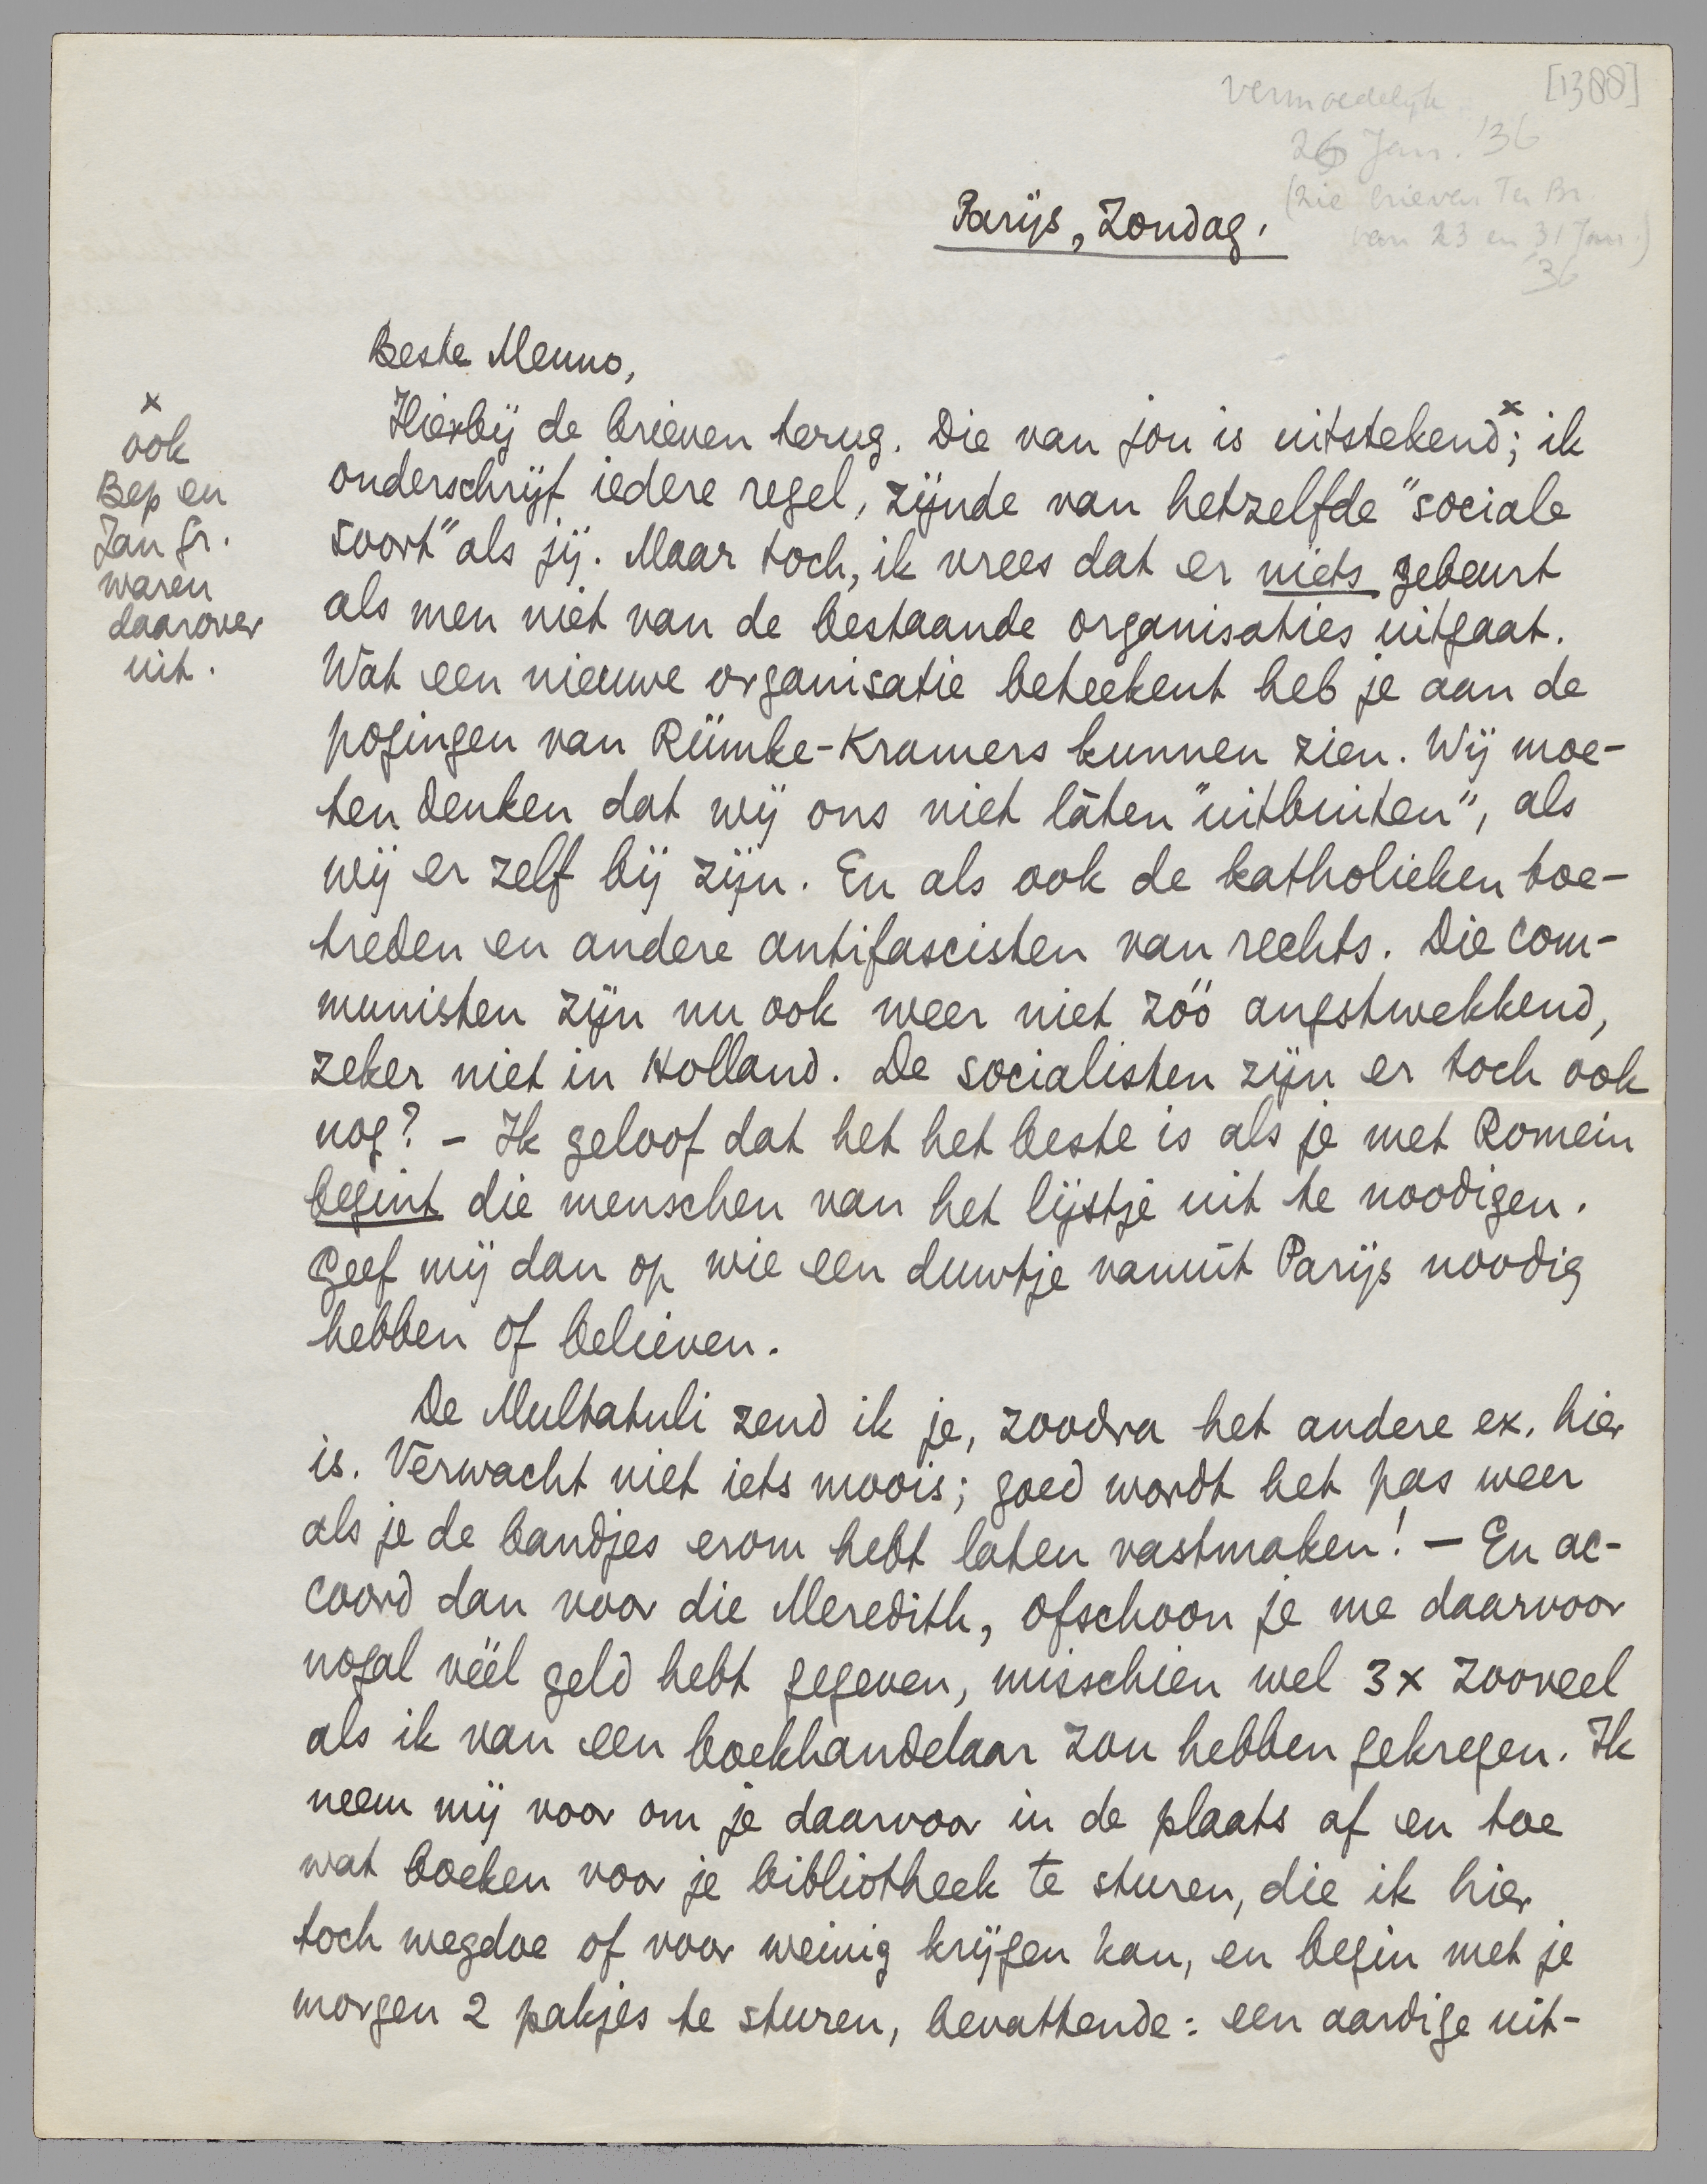 [1388]
vermoedelijk
26 Jan. '36
(zie brieven Ter Br.
van 23 en 31 Jan.)
'36
Parijs, Zondag.
Beste Menno,
Hierbij de brieven terug. Die van jou is uitstekend x; ik
onderschrijf iedere regel, zijnde van hetzelfde "sociale
soort" als jij. Maar toch, ik vrees dat er niets gebeurt
als men niet van de bestaande organisaties uitgaat.
Wat een nieuwe organisatie beteekent heb je aan de
pogingen van Rümke-Kramers kunnen zien. Wij moe-
ten denken dat wij ons niet láten "uitbuiten", als
wij er zelf bij zijn. En als ook de katholieken toe-
treden en andere antifascisten van rechts. Die com-
munisten zijn nu ook weer niet zóó angstwekkend,
zeker niet in Holland. De socialisten zijn er toch ook
nog? – Ik geloof dat het het beste is als je met Romein
begint die menschen van het lijstje uit te noodigen.
Geef mij dan op wie een duwtje vanuit Parijs noodig
hebben of believen.
De Multatuli zend ik je, zoodra het andere ex. hier
is. Verwacht niet iets moois; goed wordt het pas weer
als je de bandjes erom hebt laten vastmaken! – En ac-
coord dan voor die Meredith, ofschoon je me daarvoor
nogal véél geld hebt gegeven, misschien wel 3x zooveel
als ik van een boekhandelaar zou hebben gekregen. Ik
neem mij voor om je daarvoor in de plaats af en toe
wat boeken voor je bibliotheek te sturen, die ik hier
toch wegdoe of voor weinig krijgen kan, en begin met je
morgen 2 pakjes te sturen, bevattende: een aardige uit-
x
ook
Bep en
Jan Gr.
waren
daarover
uit.